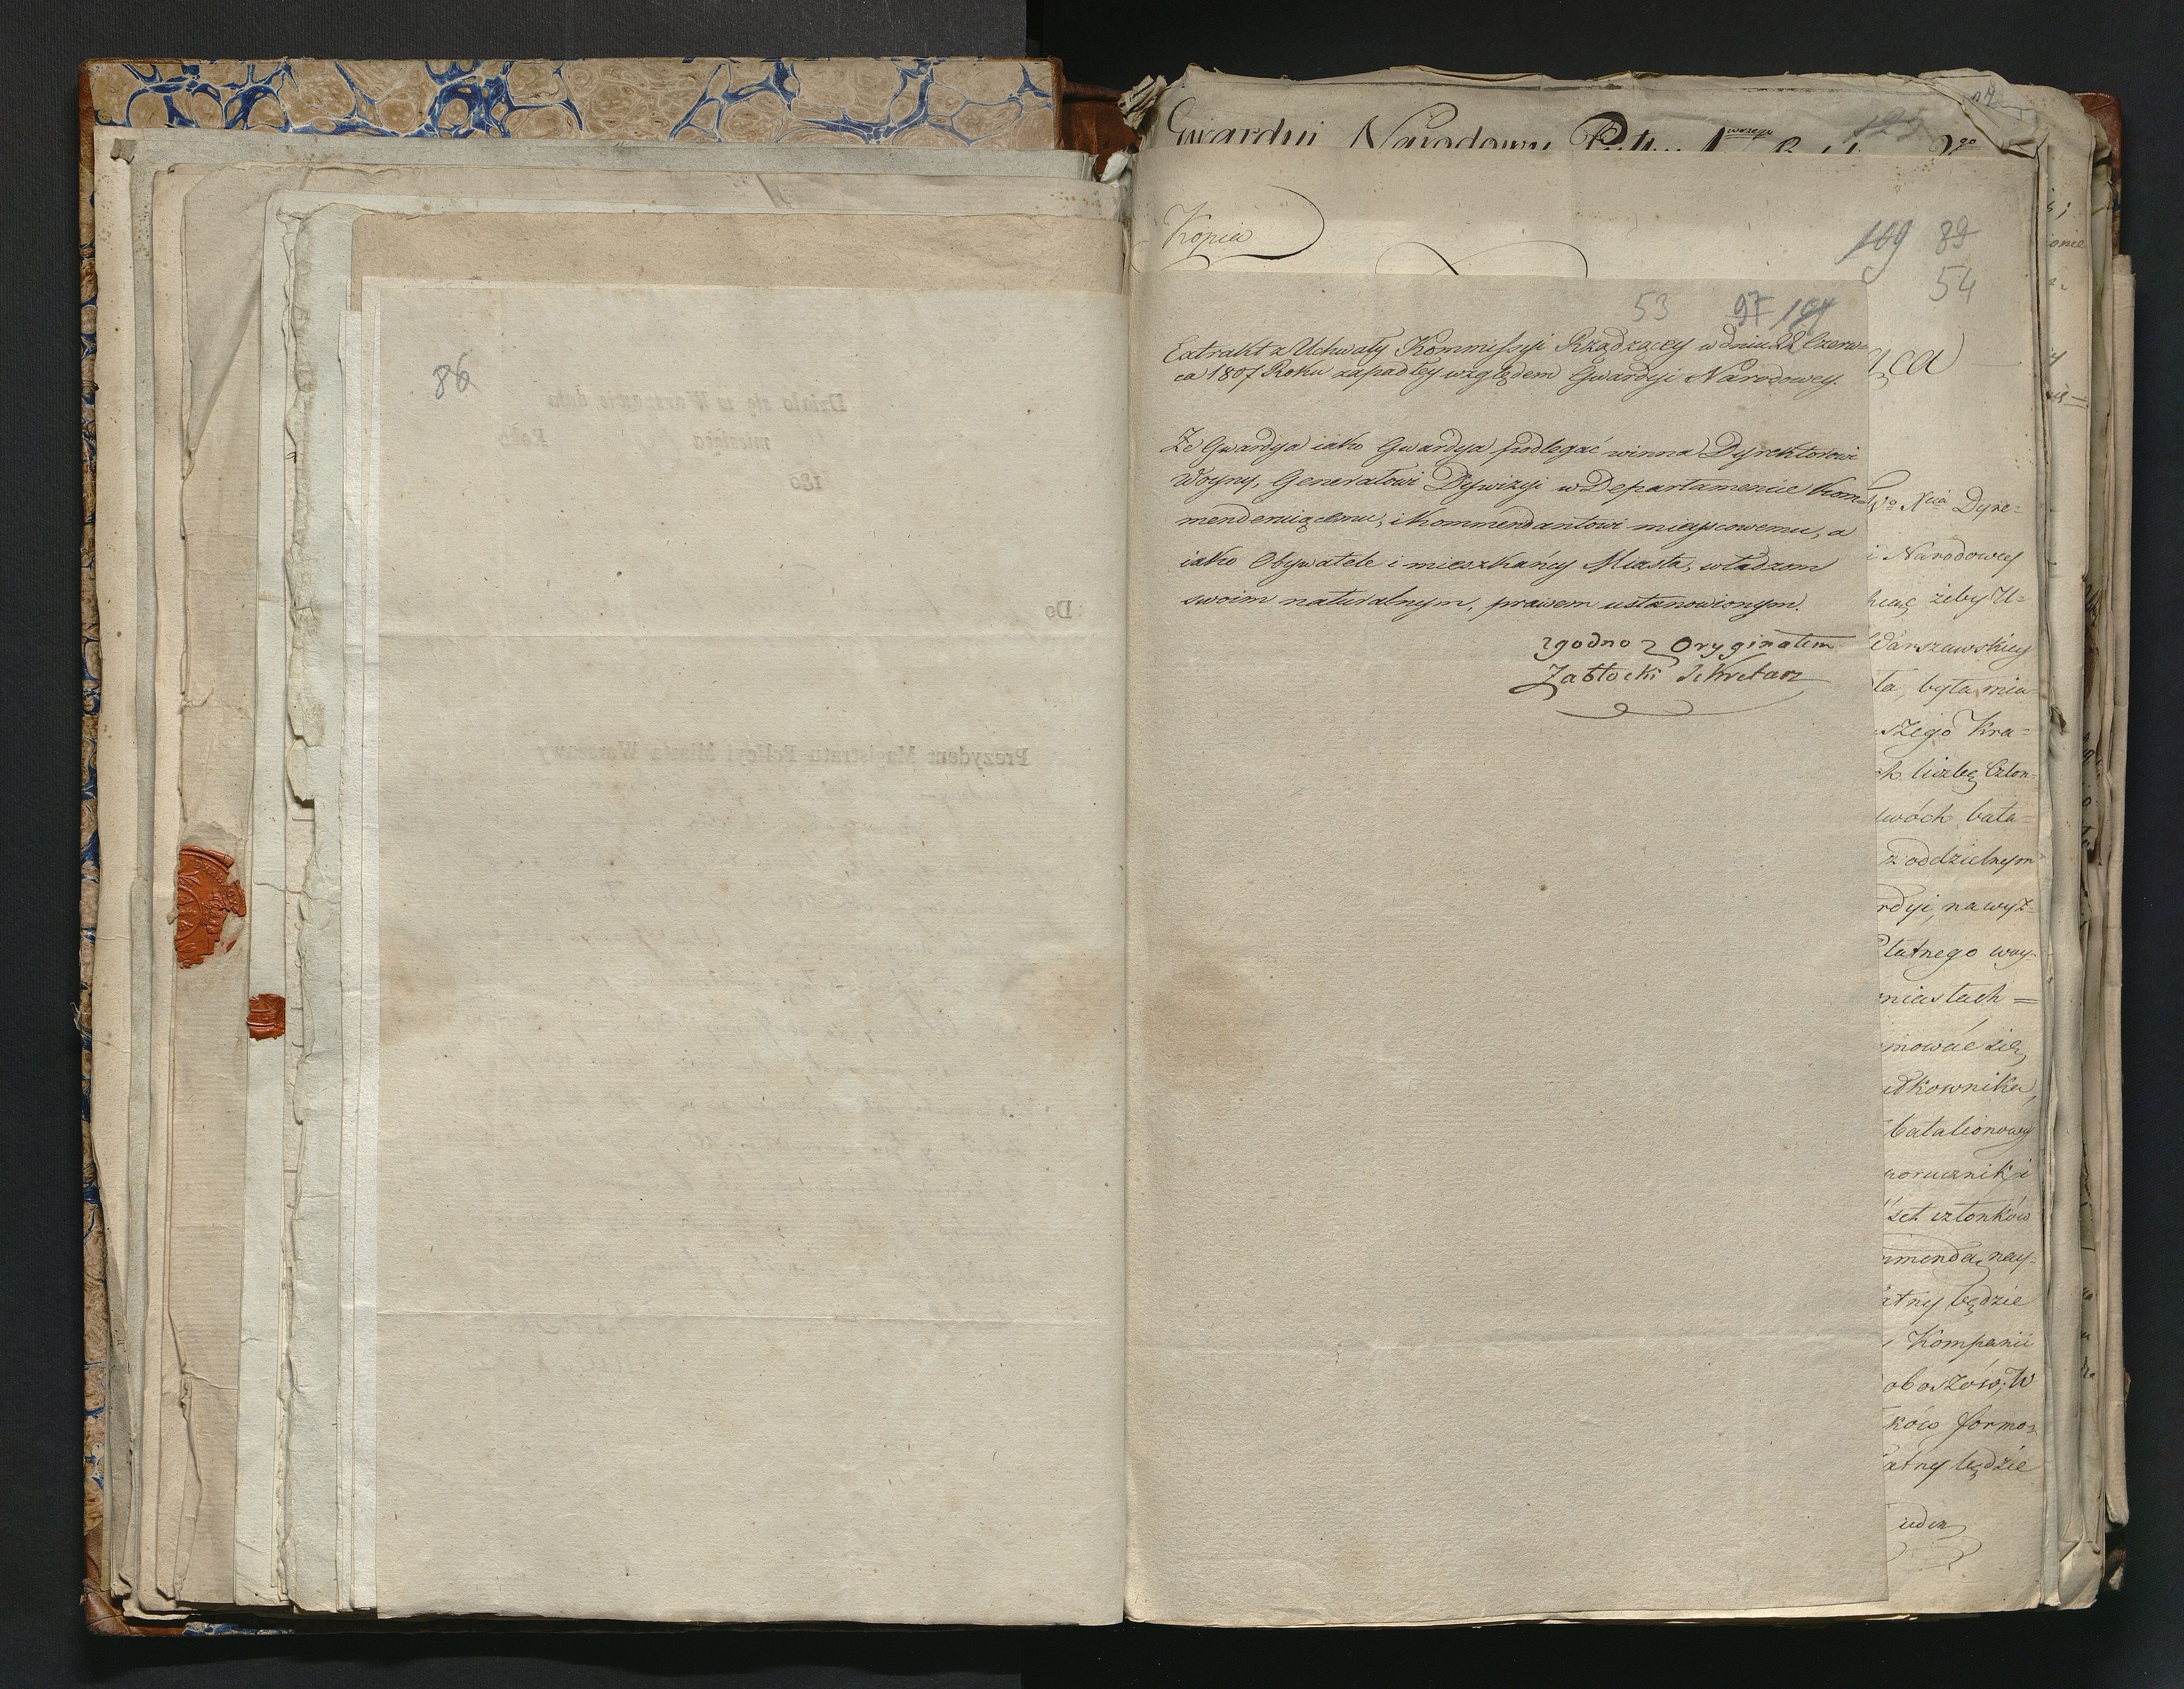 86
Działo się w Warszawie dnia
miesiąca Roku
180
Do
Prezydent Magistratu Policyi Miasta Warszawy
Gwardyi Narodowey Pułku 1wszego
Kopia
169 89
54
53 97
Extrakt z Uchwały Kommissyi Rządzącey w dniu 22 Czerw-
ca 1807 Roku zapadłey względem Gwardyi Narodowey.
Że Gwardya iako Gwardya podlegać winna Dyrektorowi
Woyny, Generałowi Dywizyi w Departamencie Kom-
menderuiącemu, i Kommendantowi mieyscowemu, a
iako Obywatele i mieszkańcy Miasta, władzom
swoim naturalnym, prawem ustanowionym.
zgodno z Oryginałem
Zabłocki Sekretarz
ąca
Dyre=
i Narodowey
żeby U=
Warszawskiey
ta, była mia-
szego Kra=
ch liczbę Człon-
dwóch bata=
z oddzielnym
rdyi, na wyż-
Płatnego woy-
miastach =
mować się
ułkownika,
batalionowy
porucznik, i
set członków
mmenda, nay-
atny będzie
Kompanii
oboszów; W
ków formo=
atny będzie